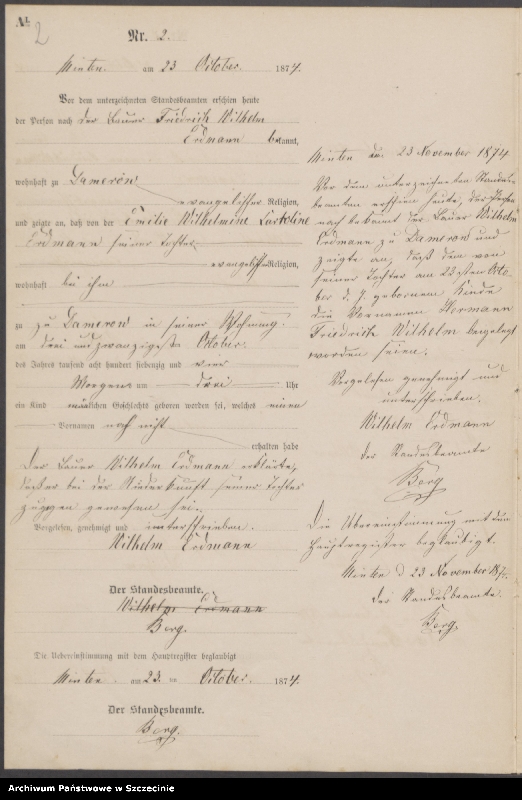 A1.
2
Nr. 2.
Minten. am 23 October. 1874.
Vor dem unterzeichneten Standesbeamten erschien heute
der Person nach der Bauer Friedrich Wilhelm
Erdmann bekannt,
wohnhaft zu Damerow
evangelischer Religion,
und zeigte an, daß von der Emilie Wilhelmine Karoline
Erdmann seiner Tochter
evangelischer Religion,
wohnhaft bei ihm
zu zu Damerow in seiner Wohnung.
am drei und zwanzigsten October.
des Jahres tausend acht hundert siebenzig und vier
Morgens um drei Uhr
ein Kind männlichen Geschlechts geboren worden sei, welches einen
Vornamen noch nicht
erhalten habe
Der Bauer Wilhelm Erdmann erklärte,
daß er bei der Niederkunft seiner Tochter
zugegen gewesen sei.
Vorgelesen, genehmigt und unterschrieben.
Wilhelm Erdmann
Der Standesbeamte.
Wilhelm Erdmann
Berg.
Die Uebereinstimmung mit dem Hauptregister beglaubigt
Minten. am 23. ten October. 1874.
Der Standesbeamte.
Berg.
Minten am 23 November 1874
Vor dem unterzeichneten Standes-
beamten erschien heute, der Person
nach bekannt der Bauer Wilhelm
Erdmann zu Damerow und
zeigte an, daß dem von
seiner Tochter am 23sten Octo-
ber d. J. geborenem Kinde
die Vornamen Hermann
Friedrich Wilhelm beigelegt
worden seien.
Vorgelesen genehmigt und
unterschrieben.
Wilhelm Erdmann
der Standesbeamte
Berg
Die Uebereinstimmung mit dem
Hauptregister beglaubigt.
Minten d 23 November 1874.
der Standesbeamte.
Berg.
Archiwum Państwowe w Szczecinie